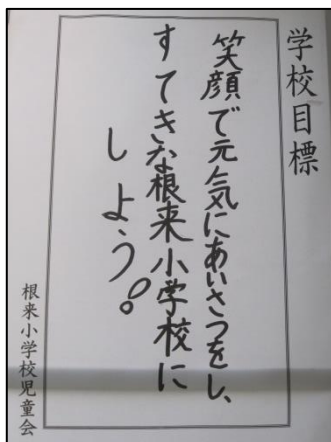 学校目標
笑顔で元気にあいさつをし、
すてきな根来小学校に
しよう!
根来小学校児童会